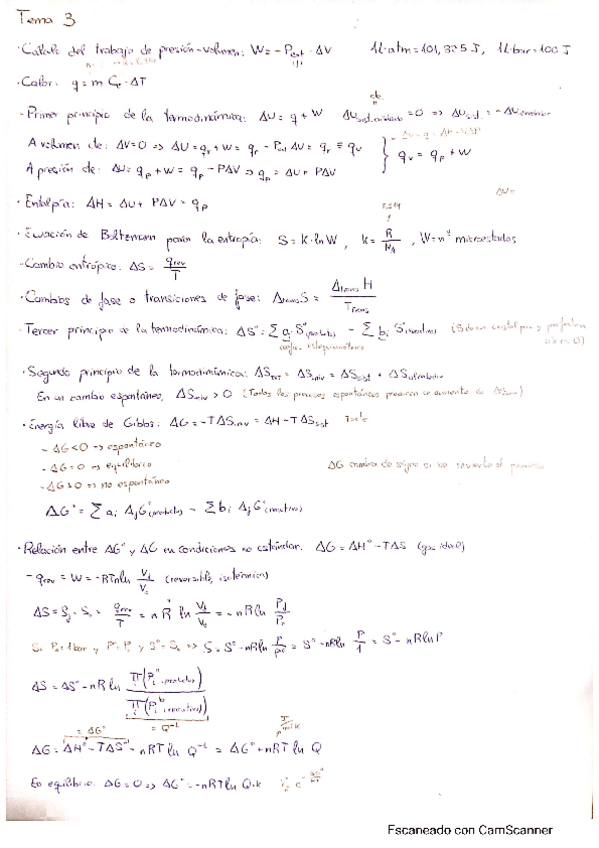 Tema 3
· Cálculo del trabajo de presión-volumen: W = - Pext · ΔV    1L·atm = 101,325 J, 1L·bar = 100 J
· Calor: q = m Ce · ΔT
· Primer principio de la termodinámica: ΔU = q + W    ΔUsist. aislado = 0 => ΔUsist = - ΔUalrededor
A volumen cte: ΔV=0 => ΔU = qv + w = qv - Pext ΔV = qv ≡ qv
A presión cte: ΔU = qp + W = qp - PΔV => qp = ΔU + PΔV    } qv = qp + W
· Entalpía: ΔH = ΔU + PΔV = qp    ΔU=
· Ecuación de Boltzmann para la entropía: S = K·ln W, k = R/NA, W = nº microestados
· Cambio entrópico: ΔS = qrev/T
· Cambios de fase o transiciones de fase: ΔtransS = ΔtransH/Ttrans
· Tercer principio de la termodinámica: ΔS° = Σ ai S°(productos) - Σ bi S°(reactivos)
· Segundo principio de la termodinámica: ΔSTOT = ΔSuniv = ΔSsist + ΔSalrededor
En un cambio espontáneo, ΔSuniv > 0 (Todos los procesos espontáneos producen un aumento de ΔSuniv)
· Energía libre de Gibbs: ΔG = -TΔSuniv = ΔH - TΔSsist    T=cte
- ΔG<0 => espontáneo
- ΔG=0 => equilibrio    ΔG cambia de signo si se invierte el proceso
- ΔG>0 => no espontáneo
ΔG° = Σ ai ΔfG°(productos) - Σ bi ΔfG°(reactivos)
· Relación entre ΔG° y ΔG en condiciones no estándar. ΔG = ΔH° - TΔS (gas ideal)
- qrev = W = -RTnln Vf/Vi (reversible, isotérmico)
ΔS = Sf - Si = qrev/T = n R ln Vf/Vi = - n R ln Pf/Pi
Si Pi = 1bar y P°=Pi y S° = Si => S = S° - nRln P/P° = S° - nRln P/1 = S° - nRlnP
ΔS = ΔS° - nR ln Π(Pi^a, productos)/Π(Pi^b, reactivos)
= ΔG°    = Q⁻¹
ΔG = ΔH° - TΔS° - nRT ln Q⁻¹ = ΔG° + nRT ln Q
En equilibrio: ΔG = 0 => ΔG° = -nRT ln Q·K
Escaneado con CamScanner